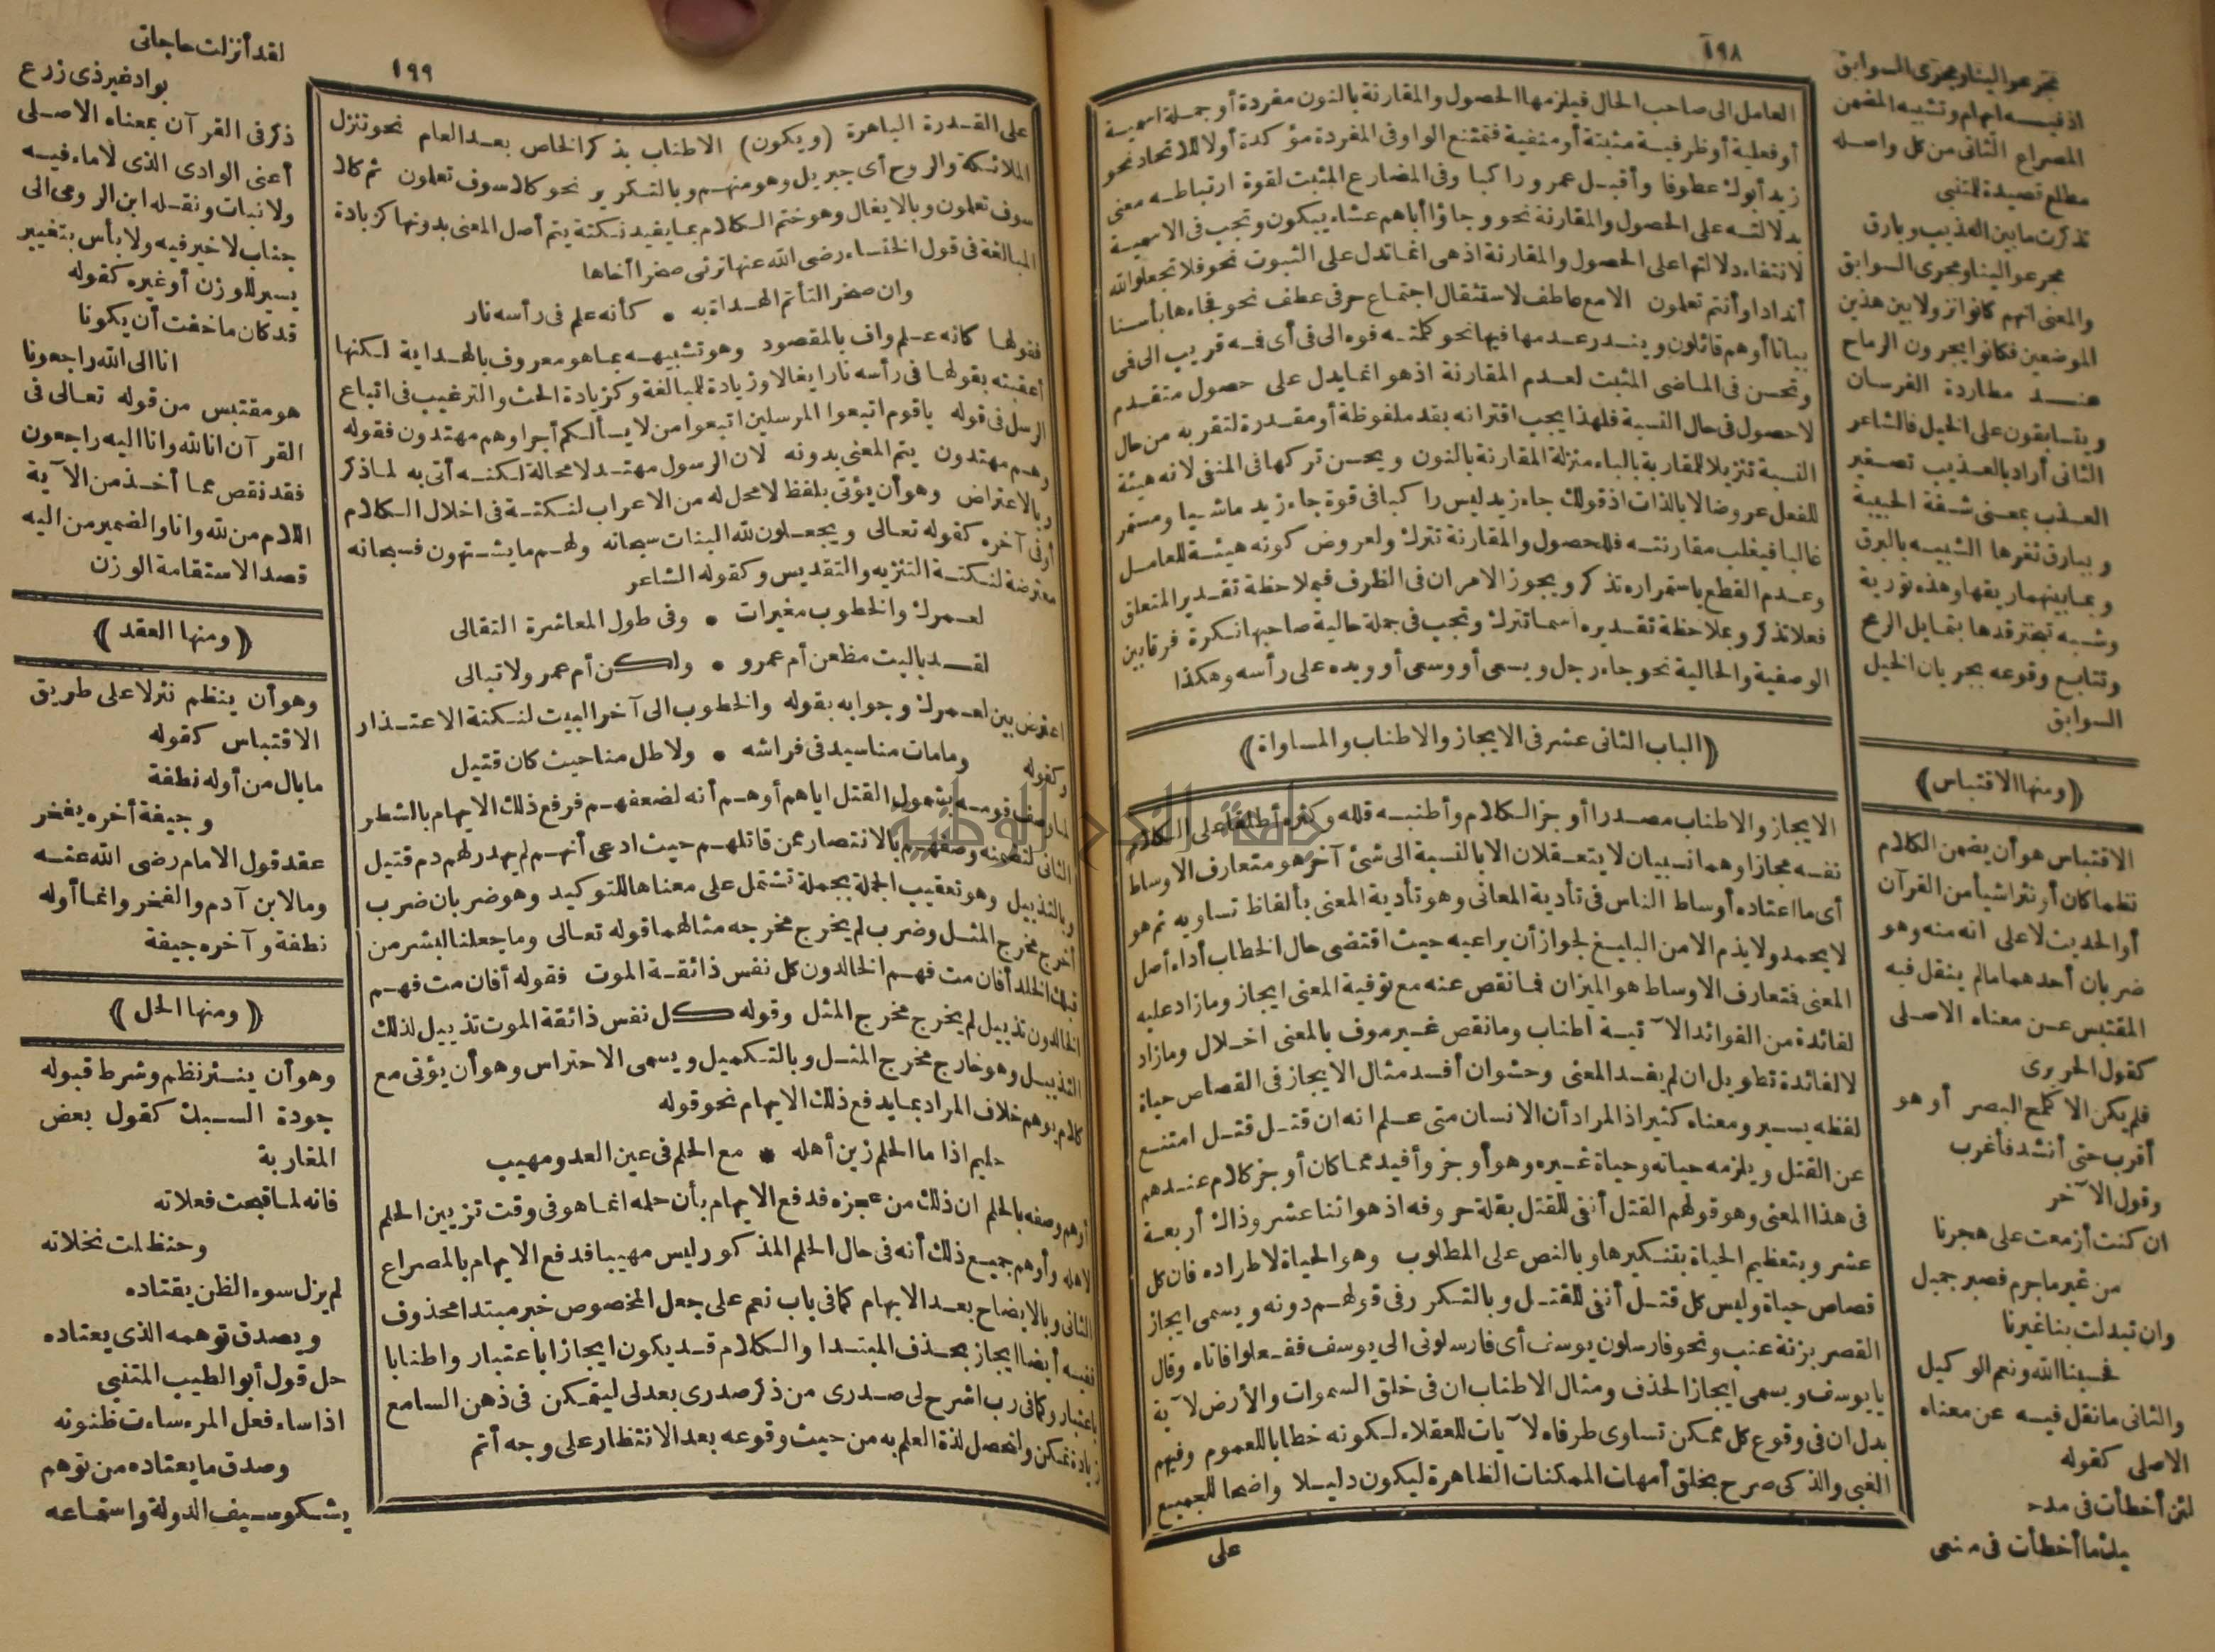 ١٩٨
العامل الى صاحب الحال فيلزمها الحصول والمقارنة بالنون مفردة أو جملة اسمية
أو فعلية أو ظرفية مثبتة أو منفية فتمتنع الواو فى المفردة مؤكدة أولا للاتحاد نحو
زيد أبوك عطوفا وأقبل عمرو راكبا وفى المضارع المثبت لقوة ارتباطه معنى
بدلالته على الحصول والمقارنة نحو وجاؤا أباهم عشاء يبكون وتجب فى الاسمية
لانتفاء دلالتها على الحصول والمقارنة اذ هى انما تدل على الثبوت نحو فلا تجعلوا لله
أندادا وأنتم تعلمون الا مع عاطف لاستثقال اجتماع حرفى عطف نحو فجاءها بأسنا
بياتا أو هم قائلون ويندر عدمها فيها نحو كلمته فوه الى فى أى فه قريب الى فى
وتحسن فى الماضى المثبت لعدم المقارنة اذ هو انما يدل على حصول متقدم
لا حصول فى حال النسبة فلهذا يجب اقترانه بقد ملفوظة أو مقدرة لتقربه من حال
النسبة تنزيلا للمقاربة بالباء منزلة المقارنة بالنون ويحسن تركها فى المنفى لانه هيئة
للفعل عروضا لا بالذات اذ قولك جاء زيد ليس راكبا فى قوة جاء زيد ماشيا ومستمر
غالبا فيغلب مقارنته فللحصول والمقارنة تترك ولعروض كونه هيئة للعامل
وعدم القطع باستمراره تذكر ويجوز الامران فى الظرف فبملاحظة تقدير المتعلق
فعلا تذكر وبملاحظة تقديره اسما تترك وتجب فى جملة حالية صاحبها نكرة فرقا بين
الوصفية والحالية نحو جاء رجل ويسعى أو وسعى أو ويده على رأسه وهكذا
﴿الباب الثانى عشر فى الايجاز والاطناب والمساواة﴾
الايجاز والاطناب مصدرا أوجز الكلام وأطنبه قلله وكثره أطلقا على الكلام
نفسه مجازا وهما نسبيان لا يتعقلان الا بالنسبة الى شئ آخر هو متعارف الاوساط
أى ما اعتاده أوساط الناس فى تأدية المعانى وهو تأدية المعنى بألفاظ تساويه ثم هو
لا يحمد ولا يذم الا من البليغ لجواز أن يراعيه حيث اقتضى حال الخطاب أداء أصل
المعنى فمتعارف الاوساط هو الميزان فما نقص عنه مع توفية المعنى ايجاز وما زاد عليه
لفائدة من الفوائد الآتية اطناب وما نقص غير موف بالمعنى اخلال وما زاد
لا لفائدة تطويل ان لم يفسد المعنى وحشو ان أفسد مثال الايجاز فى القصاص حياة
لفظه يسير ومعناه كثير اذ المراد أن الانسان متى علم انه ان قتل قتل امتنع
عن القتل ويلزمه حياته وحياة غيره وهو أوجز وأفيد مما كان أوجز كلام عندهم
فى هذا المعنى وهو قولهم القتل أنفى للقتل بقلة حروفه اذ هو اثنا عشر وذاك أربعة
عشر وبتعظيم الحياة بتنكيرها وبالنص على المطلوب وهو الحياة لاطراده فان كل
قصاص حياة وليس كل قتل أنفى للقتل وبالتكرر فى قولهم دونه ويسمى ايجاز
القصر بزنة عنب ونحو فارسلون يوسف أى فارسلونى الى يوسف ففعلوا فاتاه وقال
يا يوسف ويسمى ايجاز الحذف ومثال الاطناب ان فى خلق السموات والأرض لآية
بدل ان فى وقوع كل ممكن تساوى طرفاه لآيات للعقلاء لكونه خطابا للعموم وفيهم
الغبى والذكى صرح بخلق أمهات الممكنات الظاهرة ليكون دليلا واضحا للجميع
على
مجر عوالينا ومجرى السوابق
اذ فيه ابهام وتشبيه المضمن
المصراع الثانى من كل واصله
مطلع قصيدة للمتنبى
تذكرت ما بين العذيب وبارق
مجر عوالينا ومجرى السوابق
والمعنى انهم كانوا نزولا بين هذين
الموضعين فكانوا يجرون الرماح
عند مطاردة الفرسان
ويتسابقون على الخيل فالشاعر
الثانى أراد بالعذيب تصغير
العذب بمعنى شفة الحبيبة
وببارق ثغرها الشبيه بالبرق
وبما بينهما ريقها وهذه تورية
وشبه تبختر قدها بتمايل الرمح
وتتابع وقوعه بجريان الخيل
السوابق
﴿ومنها الاقتباس﴾
الاقتباس هو أن يضمن الكلام
نظما كان أو نثرا شيأ من القرآن
أو الحديث لا على انه منه وهو
ضربان أحدهما ما لم ينقل فيه
المقتبس عن معناه الاصلى
كقول الحريرى
فلم يكن الا كلمح البصر أو هو
أقرب حتى أنشد فأغرب
وقول الآخر
ان كنت أزمعت على هجرنا
من غير ما جرم فصبر جميل
وان تبدلت بنا غيرنا
فحسبنا الله ونعم الوكيل
والثانى ما نقل فيه عن معناه
الاصلى كقوله
لئن أخطأت فى مدحـ
يك ما أخطأت فى منعى
١٩٩
على القدرة الباهرة (ويكون) الاطناب بذكر الخاص بعد العام نحو تنزل
الملائكة والروح أى جبريل وهو منهم وبالتكرير نحو كلا سوف تعلمون ثم كلا
سوف تعلمون وبالايغال وهو ختم الكلام بما يفيد نكتة يتم أصل المعنى بدونها كزيادة
المبالغة فى قول الخنساء رضى الله عنها ترثى صخرا أخاها
وان صخر التأتم الهداة به • كأنه علم فى رأسه نار
فقولها كانه علم واف بالمقصود وهو تشبيهه بما هو معروف بالهداية لكنها
أعقبته بقولها فى رأسه نار ايغالا وزيادة للمبالغة وكزيادة الحث والترغيب فى اتباع
الرسل فى قوله ياقوم اتبعوا المرسلين اتبعوا من لا يسألكم أجرا وهم مهتدون فقوله
وهم مهتدون يتم المعنى بدونه لان الرسول مهتد لا محالة لكنه أتى به لما ذكر
وبالاعتراض وهو أن يؤتى بلفظ لا محل له من الاعراب لنكتة فى اخلال الكلام
أو فى آخره كقوله تعالى ويجعلون لله البنات سبحانه ولهم ما يشتهون فسبحانه
معترضة لنكتة التنزيه والتقديس وكقوله الشاعر
لعمرك والخطوب مغيرات • وفى طول المعاشرة التقالى
لقد باليت مظعن أم عمرو • ولكن أم عمرو لا تبالى
اعترض بين لعمرك وجوابه بقوله والخطوب الى آخر البيت لنكتة الاعتذار
وكقوله وما مات منا سيد فى فراشه • ولا طل منا حيث كان قتيل
لما وصف قومه بشمول القتل اياهم أوهم أنه لضعفهم فرفع ذلك الايهام بالشطر
الثانى لتضمنه وصفهم بالانتصار ممن قاتلهم حيث ادعى أنهم لم يهدر لهم دم قتيل
وبالتذييل وهو تعقيب الجملة بجملة تشتمل على معناها للتوكيد وهو ضربان ضرب
أخرج مخرج المثل وضرب لم يخرج مخرجه مثالهما قوله تعالى وما جعلنا لبشر من
قبلك الخلد أفان مت فهم الخالدون كل نفس ذائقة الموت فقوله أفان مت فهم
الخالدون تذييل لم يخرج مخرج المثل وقوله كل نفس ذائقة الموت تذييل لذلك
التذييل وهو خارج مخرج المثل وبالتكميل ويسمى الاحتراس وهو أن يؤتى مع
كلام يوهم خلاف المراد بما يدفع ذلك الايهام نحو قوله
حليم اذا ما الحلم زين أهله • مع الحلم فى عين العدو مهيب
أوهم وصفه بالحلم ان ذلك من عجزه فدفع الايهام بأن حلمه انما هو فى وقت تزيين الحلم
لاهله وأوهم جميع ذلك أنه فى حال الحلم المذكور ليس مهيبا فدفع الايهام بالمصراع
الثانى وبالايضاح بعد الابهام كما فى باب نعم على جعل المخصوص خبر مبتدا محذوف
ففيه أيضا ايجاز بحذف المبتدا والكلام قد يكون ايجازا باعتبار واطنابا
باعتبار وكما فى رب اشرح لى صدرى من ذكر صدرى بعد لى ليتمكن فى ذهن السامع
زيادة تمكن ولتحصل لذة العلم به من حيث وقوعه بعد الانتظار على وجه أتم
لقد أنزلت حاجاتى
بواد غير ذى زرع
ذكر فى القرآن بمعناه الاصلى
أعنى الوادى الذى لا ماء فيه
ولا نبات ونقله ابن الرومى الى
جناب لا خير فيه ولا بأس بتغيير
يسير للوزن أو غيره كقوله
قد كان ما خفت أن يكونا
انا الى الله راجعونا
هو مقتبس من قوله تعالى فى
القرآن انا لله وانا اليه راجعون
فقد نقص مما أخذ من الآية
اللام من لله وانا والضمير من اليه
قصد الاستقامة الوزن
﴿ومنها العقد﴾
وهو أن ينظم نثر لا على طريق
الاقتباس كقوله
ما بال من أوله نطفة
وجيفة أخره يفخر
عقد قول الامام رضى الله عنه
وما لابن آدم والفخر وانما أوله
نطفة وآخره جيفة
﴿ومنها الحل﴾
وهو أن ينثر نظم وشرط قبوله
جودة السبك كقول بعض
المغاربة
فانه لما قبحت فعلاته
وحنظلت نخلاته
لم يزل سوء الظن يقتاده
ويصدق توهمه الذى يعتاده
حل قول أبو الطيب المتنبى
اذا ساء فعل المرء ساءت ظنونه
وصدق ما يعتاده من توهم
يشكو سيف الدولة واستماعه